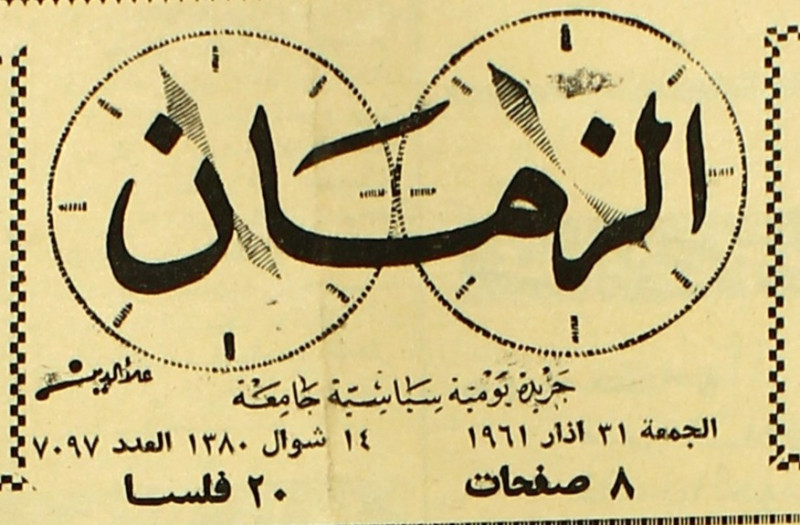 الزمان
علاء الدين
جريدة يومية سياسية جامعة
الجمعة ٣١ اذار ١٩٦١ ١٤ شوال ١٣٨٠ العدد ٧٠٩٧
٨ صفحات ٢٠ فلسا